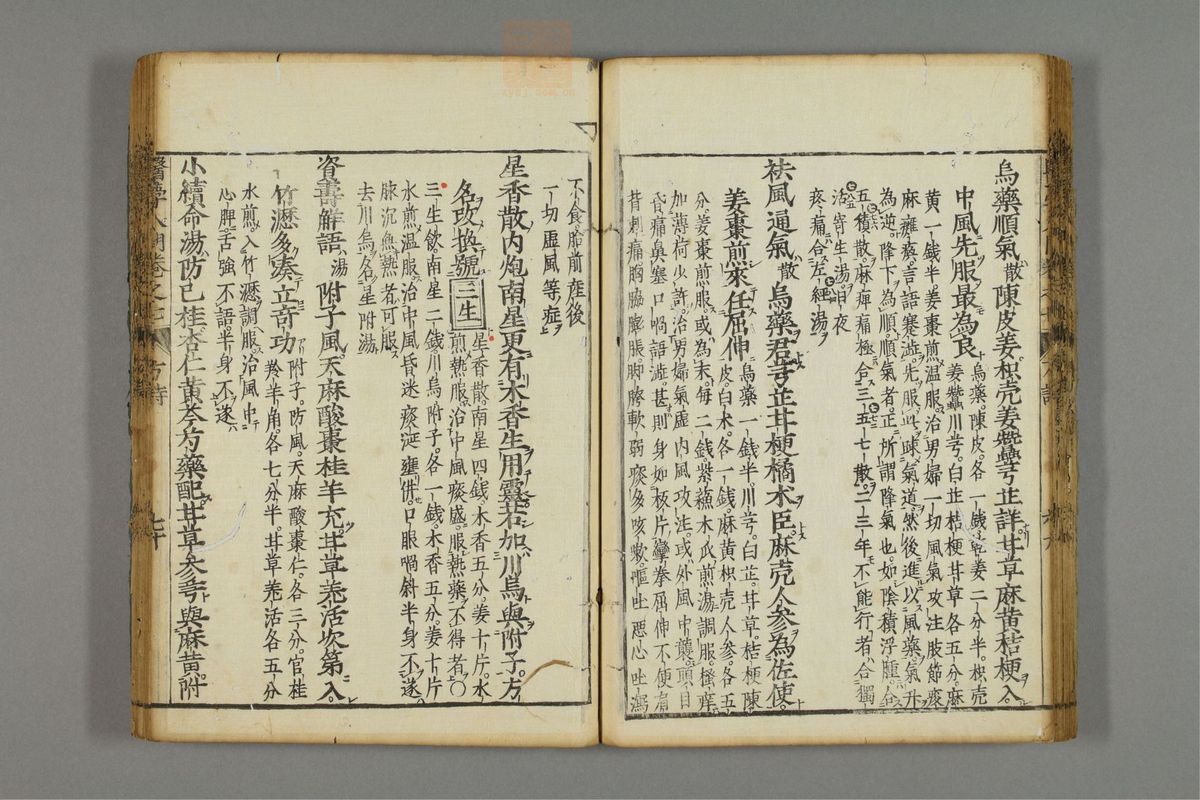 烏藥順氣散陳皮姜枳壳姜蠶芎芷詳甘草麻黄秸梗入
中風先服最為良
烏藥陳皮各一錢乾姜二分半枳壳
姜蠶川芎白芷桔梗甘草各五分麻
黄一錢半姜棗煎温服治男婦一切風氣攻注肢節痠
麻癱瘓言語蹇澁先服此疎氣道然後進以風藥氣升
為逆降下為順順氣者正所謂降氣也如陰積浮腫合
五積散麻痺痛極合三五七散二三年不能行者合獨
活寄生湯日夜
疼痛合左經湯
祛風通氣散烏藥君芎芷甘梗橘朮臣麻壳人參為佐使
姜棗煎來任屈伸
烏藥一錢半川芎白芷甘草桔梗陳
皮白朮各一錢麻黄枳壳人參各五
分姜棗煎服或為末每二錢紫蘇木瓜煎湯調服搔痒
加薄荷少許治男婦氣虚内風攻注或外風中襲頭目
昏痛鼻塞口喎語澁甚則身如板片攣拳屈伸不便肩
背刺痛胸脇膨脹脚膝軟弱痰多咳嗽嘔吐惡心吐瀉
不食胎前産後
一切虚風等症
星香散内炮南星更有木香生用靈若加川烏與附子方
名改換號三生
星香散南星四錢木香五分姜十片水
煎熱服治中風痰盛服熱藥不得者〇
三生飲南星二錢川烏附子各一錢木香五分姜十片
水煎温服治中風昏迷痰涎壅併口眼喎斜半身不遂
脉沉無熱者可服
去川烏名星附湯
資壽解語湯附子風天麻酸棗桂羊充甘草羗活次第入
竹瀝多湊立奇功
附子防風天麻酸棗仁各三分官桂
羚羊角各七分半甘草羗活各五分
水煎入竹瀝調服治風中
心脾舌強不語半身不遂
小續命湯防已桂杏仁黄芩芍藥配甘草參芎與麻黄附